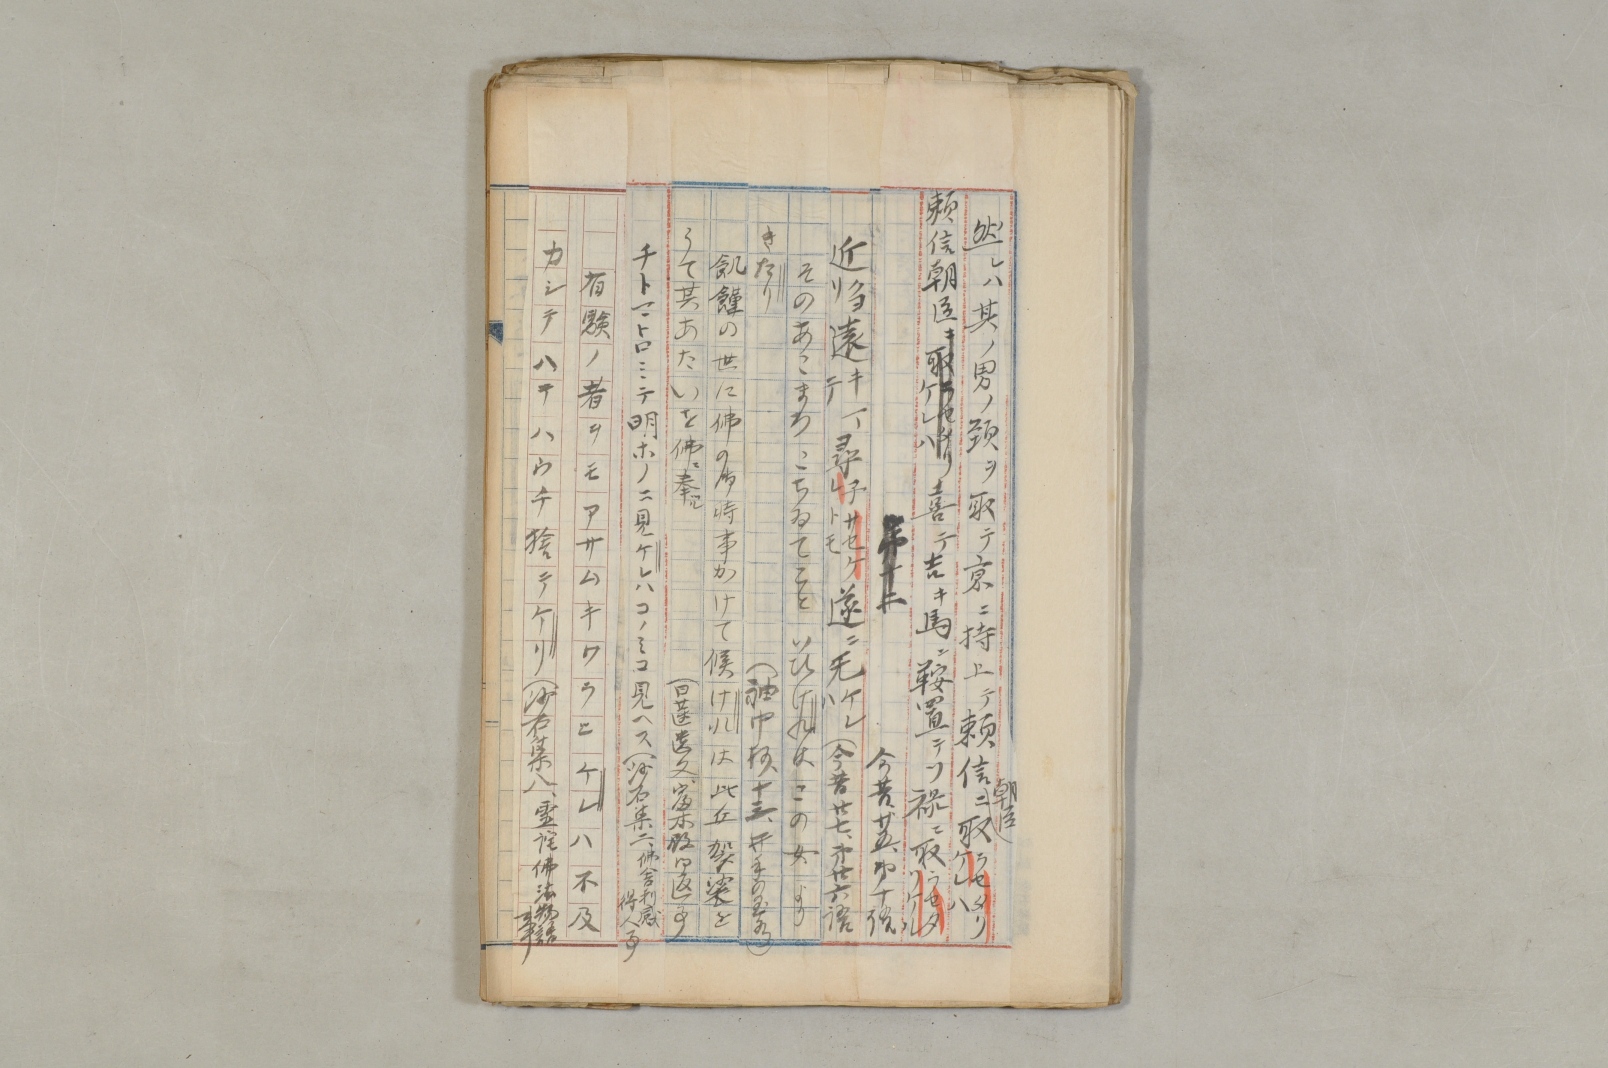 然レハ其ノ男ノ頸ヲ取テ京ニ持上テ頼信朝臣ニ取ラセタリケレハ
頼信朝臣喜テ吉キ馬ニ鞍置テソ禄ニ取ラセタリケル
今昔廿五、第十語
第十二
近ク遠キ尋子サセケレトモ遂ニ无ケレハ(今昔廿七、第廿六語
そのあこまろこちゐてこといひけれはこの女より
きたり(袖中抄、十三、井手の玉水)
飢饉の世に佛の御時事かけて候けれは此丘袈裟を
うて其あたいを佛に奉
(日蓮遺文、富木殿御返事
チトマトロミテ明ホノニ見ケレハコノミコ見ヘス(沙石集二、佛舎利感得人事
有験ノ者ヲモアサムキワラヒケレハ不及
カシテハテハウチ捨テケリ(沙石集八、霊託佛法物語事